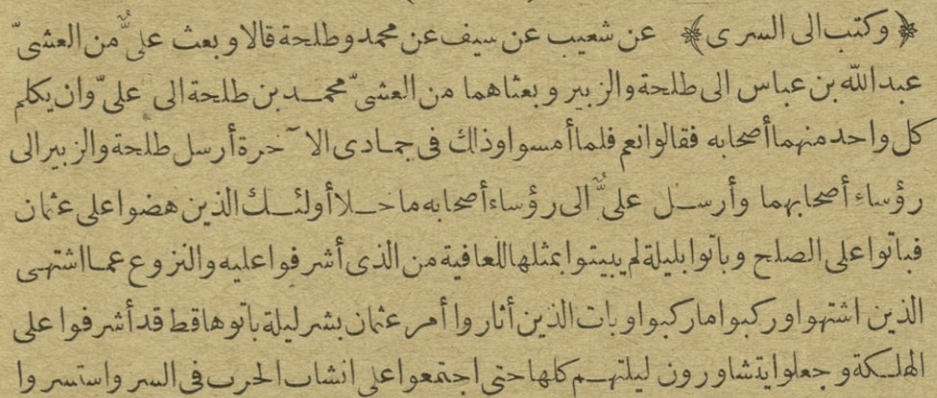 ﴿وكتب الى السرى﴾ عن شعيب عن سيف عن محمد وطلحة قالا وبعث علىٌّ من العشىّ
عبد الله بن عباس الى طلحة والزبير وبعثاهما من العشىّ محمد بن طلحة الى علىّ وان يكلم
كل واحد منهما أصحابه فقالوا نعم فلما أمسوا وذلك فى جمادى الآخرة أرسل طلحة والزبير الى
رؤساء أصحابهما وأرسل علىٌّ الى رؤساء أصحابه ما خلا أولئك الذين هضوا على عثمان
فباتوا على الصلح وباتوا بليلة لم يبيتوا بمثلها للعافية من الذى أشرفوا عليه والنزوع عما اشتهى
الذين اشتهوا وركبوا ما ركبوا وبات الذين أثاروا أمر عثمان بشر ليلة باتوها قط قد أشرفوا على
الهلكة وجعلوا يتشاورون ليلتهم كلها حتى اجتمعوا على انشاب الحرب فى السر واستسروا